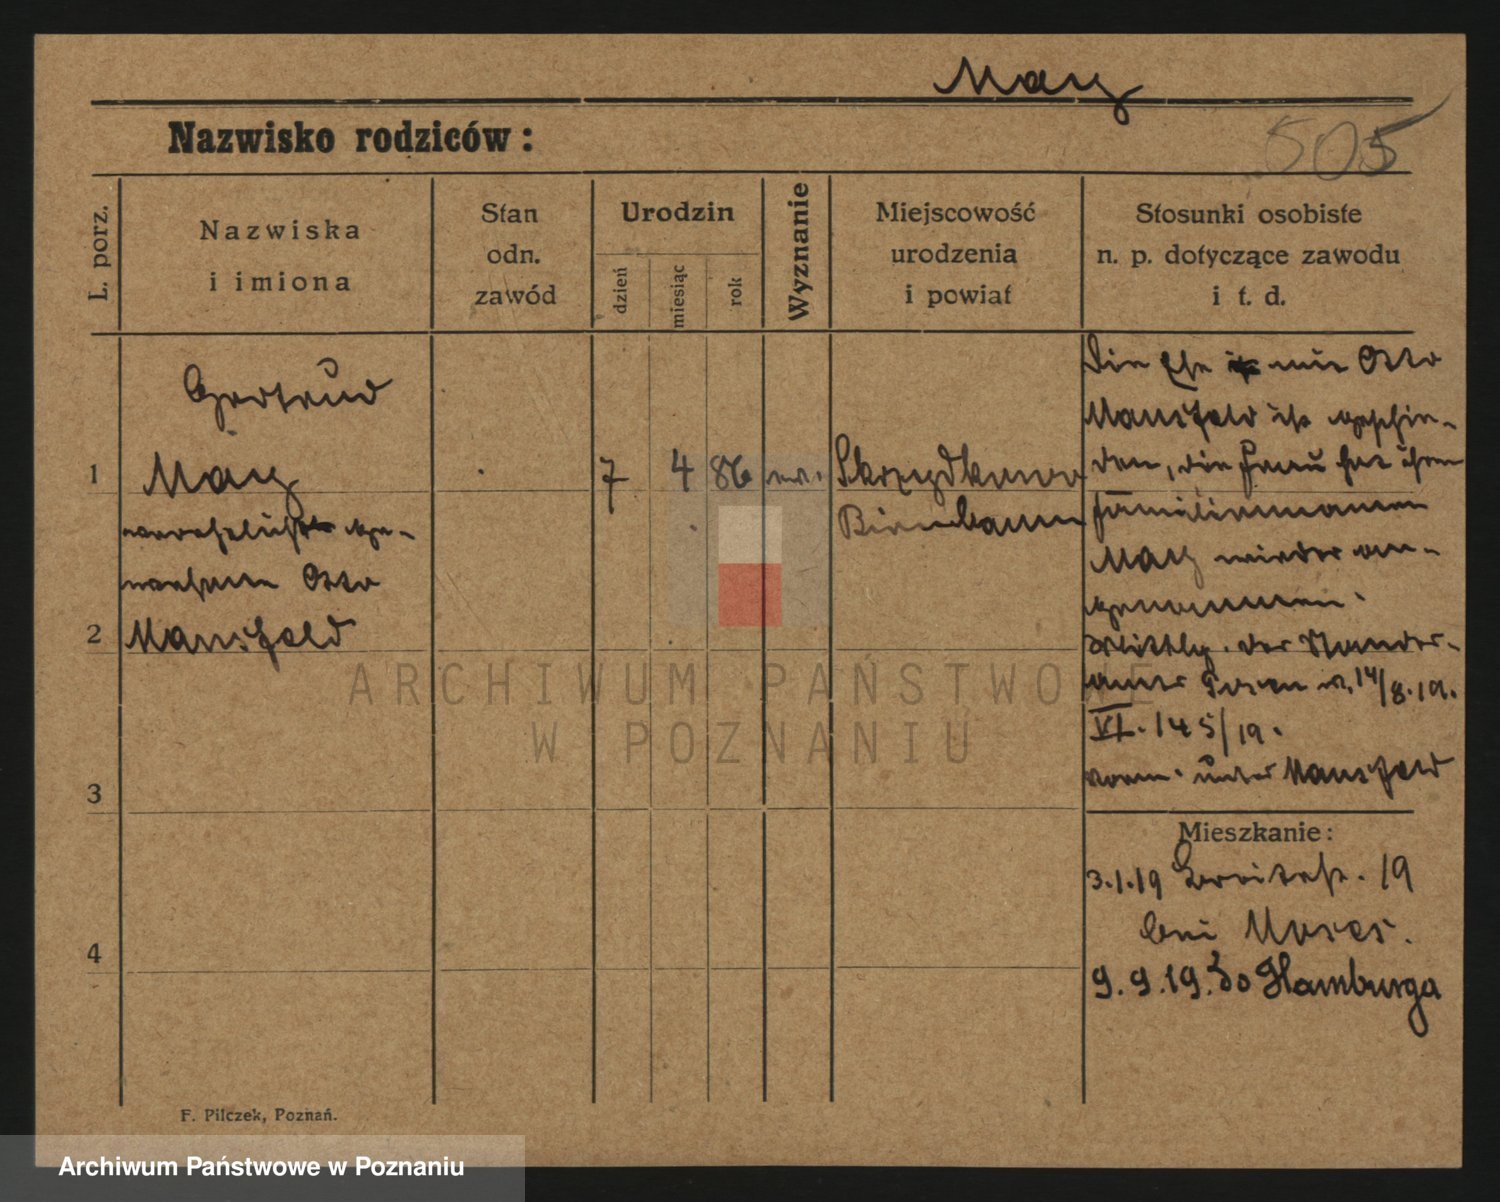 May
Nazwisko rodziców:
505
L. porz.
Nazwiska
i imiona
Stan
odn.
zawód
Urodzin
dzień
miesiąc
rok
Wyznanie
Miejscowość
urodzenia
i powiat
Stosunki osobiste
n. p. dotyczące zawodu
i t. d.
Gertrud
1
May
7
4
86
ev.
Birnbaum
verehelicht ge-
wesene Otto
2
Mansfeld
Die Ehe mit Otto
Mansfeld ist geschie-
den, die Frau hat ihren
Familiennamen
May wieder an-
genommen.
der Standes-
amts Posen v. 14/8.19.
VI. 145/19.
vorm. unter Mansfeld
3
Mieszkanie:
3.1.19 19
bei Moses.
4
9.9.19. do Hamburga
F. Pilczek, Poznań.
ARCHIWUM PAŃSTWOWE
W POZNANIU
Archiwum Państwowe w Poznaniu